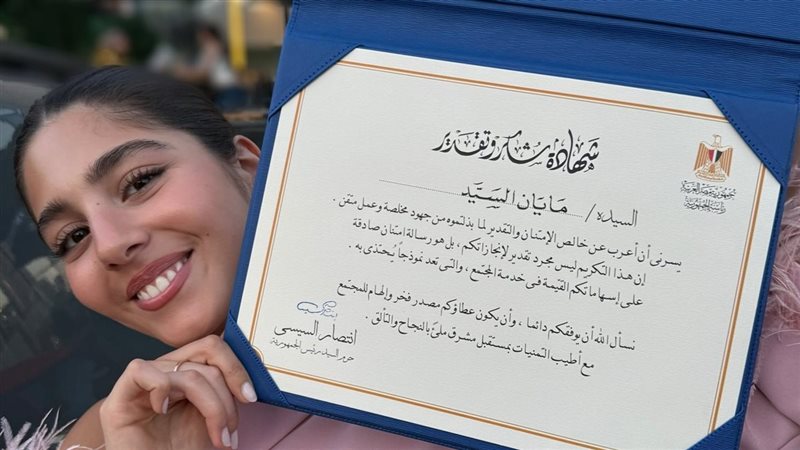 جمهورية مصر العربية
رئاسة الجمهورية
شهادة شكر وتقدير
السيدة/ مايان السيد
يسرنى أن أعرب عن خالص الإمتنان والتقدير لما بذلتموه من جهود مخلصة وعمل متقن .
إن هذا التكريم ليس مجرد تقدير لإنجازاتكم، بل هو رسالة امتنان صادقة
على إسهاماتكم القيمة فى خدمة المجتمع، والتى تعد نموذجاً يُحتذى به .
نسأل الله أن يوفقكم دائما، وأن يكون عطاؤكم مصدر فخر وإلهام للمجتمع
مع أطيب التمنيات بمستقبل مشرق ملىء بالنجاح والتألق .
انتصار السيسى
حرم السيد رئيس الجمهورية